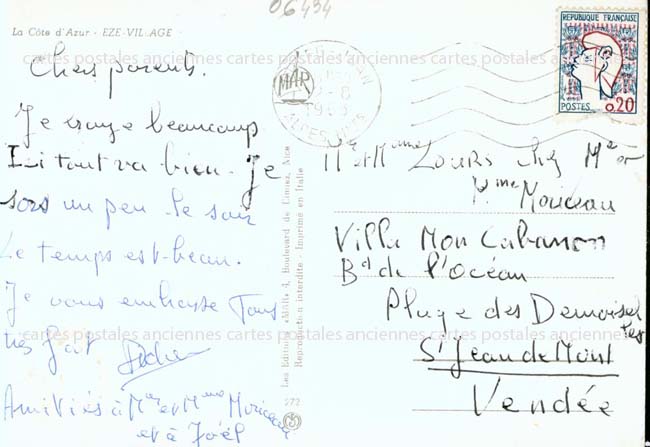 06434
La Côte d'Azur - EZE-VILLAGE
Chers parents.
Je nage beaucoup
Ici tout va bien. Je
sors un peu le soir
Le temps est beau.
Je vous embrasse Tous
très fort Didier
Amitiés à Mr et Mme Moriceau
et à Joël
Les Editions «Mill» 4, Boulevard de Cimiez, Nice
Reproduction interdite - Imprimé en Italie
272
MAR
ALPES MMES
REPUBLIQUE FRANÇAISE
POSTES 0,20
Mr et Mme Lours chez Mr et
Mme Moriceau
Villa Mon Cabanon
Bd de l'Océan
Plage des Demoiselles
St Jean de Mont
Vendée
cartes postales anciennes cartes postales anciennes cartes postales anciennes
cartes postales anciennes cartes postales anciennes cartes postales anciennes